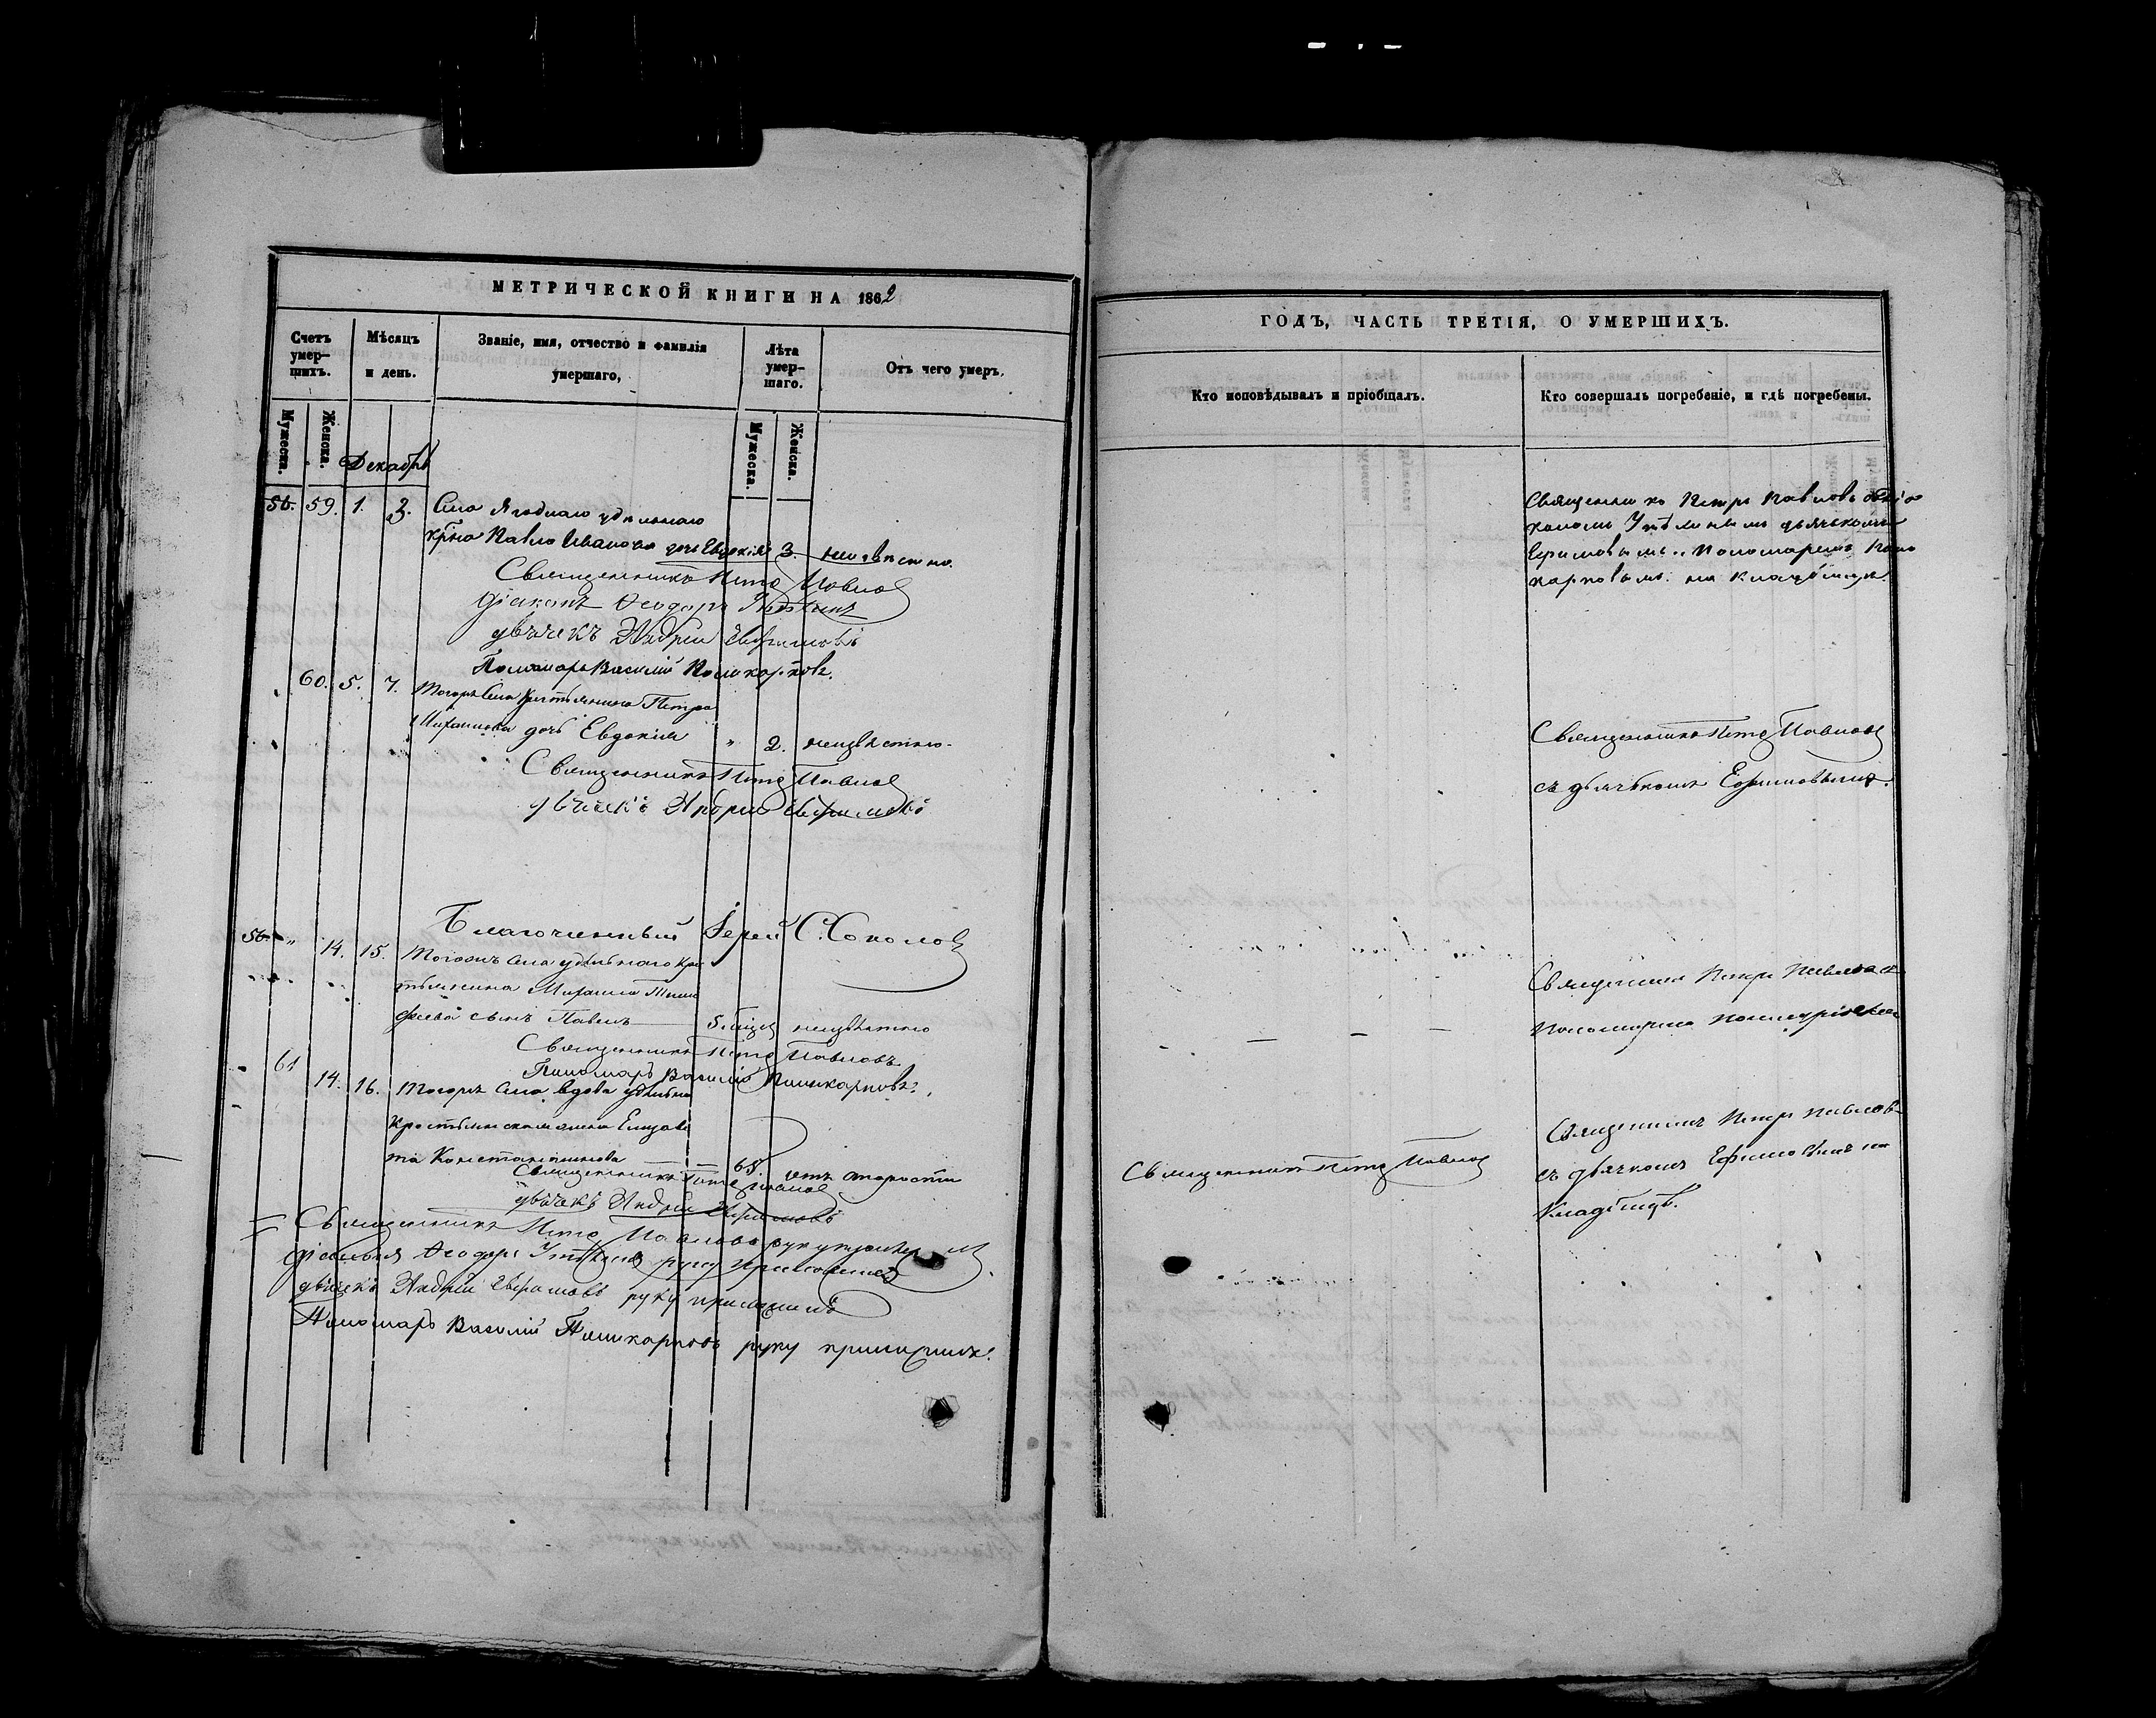 МЕТРИЧЕСКОЙ КНИГИ НА 1862
Счетъ умер-шихъ.
Мѣсяцъ и день.
Званіе, имя, отчество и фамилія умершаго,
Лѣта умер-шаго.
Отъ чего умеръ.
Мужеска.
Женска.
Декабрь
Мужеска.
Женска.
56. 59. 1. 3. Села Ягоднаго удѣльнаго
крѣна Павла Иванова дочь Евдокія 3. неизвѣстно.
Священникъ Петръ Павловъ
Діаконъ Ѳеодоръ
дьячекъ Андрей Ефимовъ
Пономарь Василій Поликарповъ.
60. 5. 7. Тогожъ Села Крестьянина Петра
дочь Евдокія " 2. неизвѣстно.
Священникъ Петръ Павловъ
дьячекъ Андрей Ефимовъ
Благочинный Іерей С. Соколовъ
56. " 14. 15. Тогожъ Села удѣльнаго кре
стьянина Михаила Тимо
феева сынъ Павелъ 5. мѣся неизвѣстно
Священникъ Петръ Павловъ
Пономарь Василій Поликарповъ.
61 14. 16. Тогожъ Села вдова удѣльна
Крестьянская жена Елизаве
та Константинова — 68. отъ старости
Священникъ Петръ Павловъ
дьячекъ Андрей Ефимовъ
Священникъ Петръ Павловъ руку приложилъ
Діаконъ Ѳеодоръ руку приложилъ
дьячекъ Андрей Ефимовъ руку приложилъ
Пономарь Василій Поликарповъ руку приложилъ.
ГОДЪ, ЧАСТЬ ТРЕТІЯ, О УМЕРШИХЪ.
Кто исповѣдывалъ и пріобщалъ.
Кто совершалъ погребеніе, и гдѣ погребены.
Священникъ Петръ Павловъ съ діа
кономъ дьячькомъ
Ефимовымъ и Пономаремъ Поли
карповымъ на кладбищѣ.
Священникъ Петръ Павловъ
съ дьячькомъ Ефимовымъ.
Священникъ Петръ Павловъ съ
Пономаремъ
Священникъ Петръ Павловъ
Священникъ Петръ Павловъ
съ дьячкомъ Ефимовымъ на
Кладбищѣ.